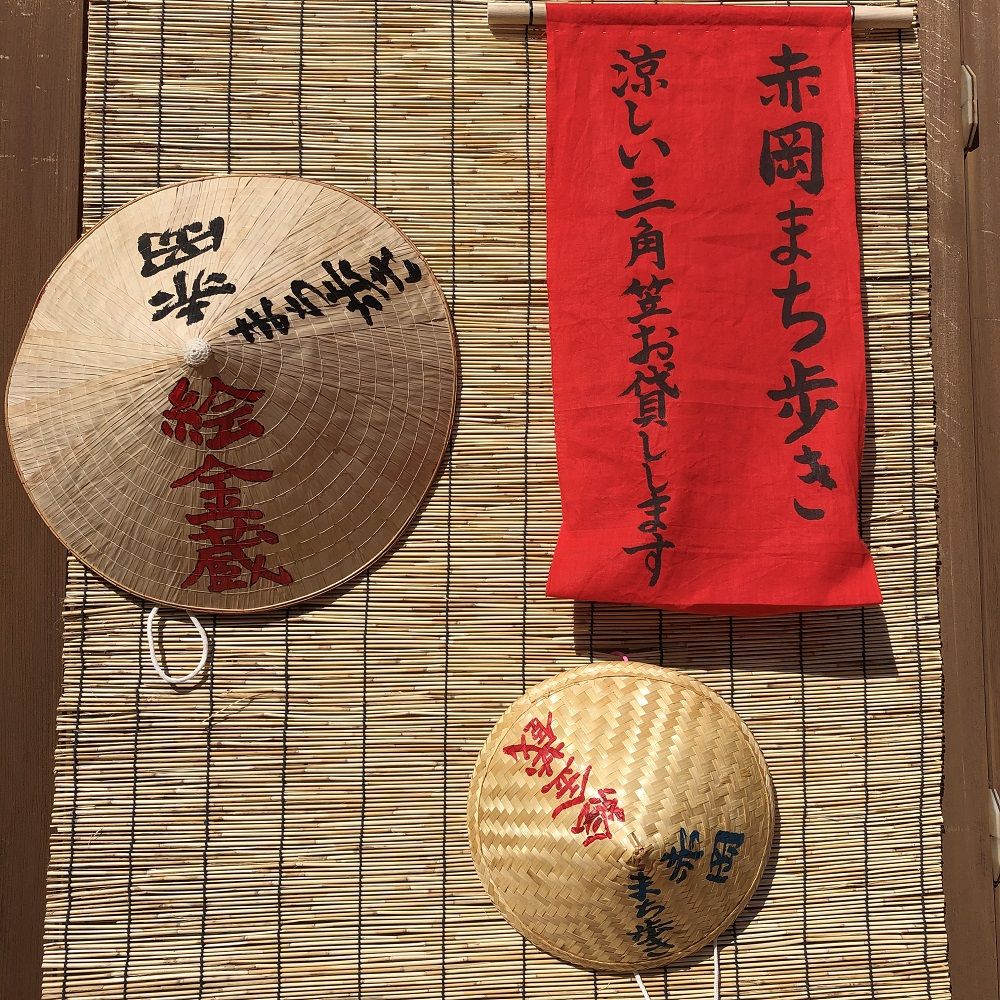 赤岡まち歩き
涼しい三角笠お貸しします
赤岡
まち歩き
絵金蔵
絵金蔵
赤岡
まち